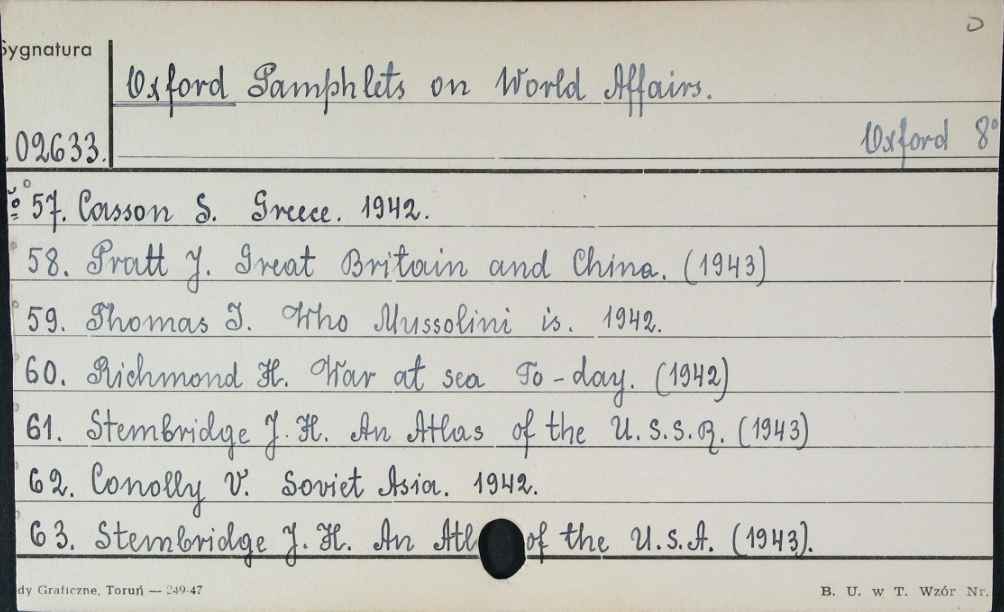 Sygnatura
Oxford Pamphlets on World Affairs.
02633.
Oxford 8°
57. Casson S. Greece. 1942.
58. Pratt J. Great Britain and China. (1943)
59. Thomas I. Who Mussolini is. 1942.
60. Richmond H. War at sea To-day. (1942)
61. Stembridge J. H. An Atlas of the U.S.S.R. (1943)
62. Conolly V. Soviet Asia. 1942.
63. Stembridge J. H. An Atl of the U.S.A. (1943).
dy Graficzne, Toruń — 249-47
B. U. w T. Wzór Nr.